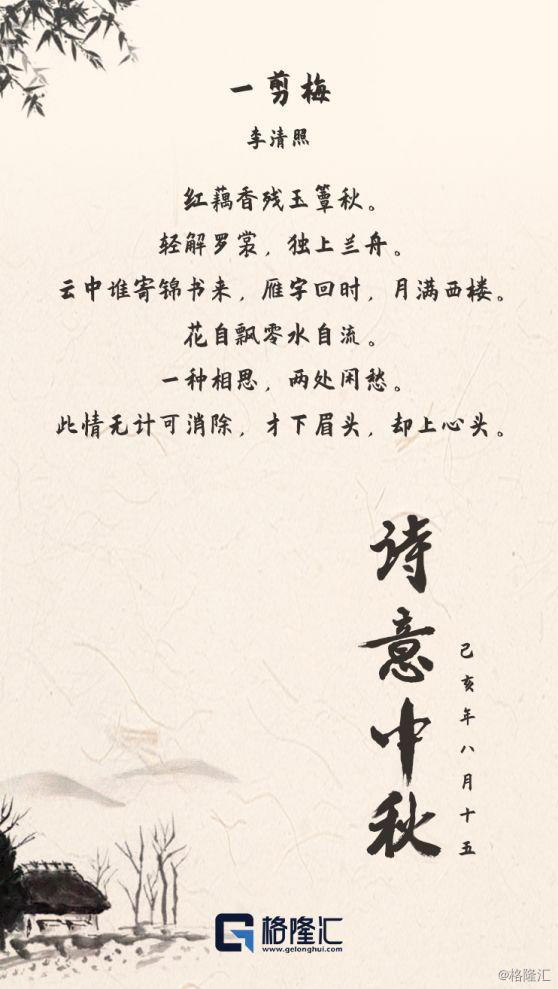 一剪梅
李清照
红藕香残玉簟秋。
轻解罗裳，独上兰舟。
云中谁寄锦书来，雁字回时，月满西楼。
花自飘零水自流。
一种相思，两处闲愁。
此情无计可消除，才下眉头，却上心头。
诗意中秋
己亥年八月十五
格隆汇
www.gelonghui.com
@格隆汇